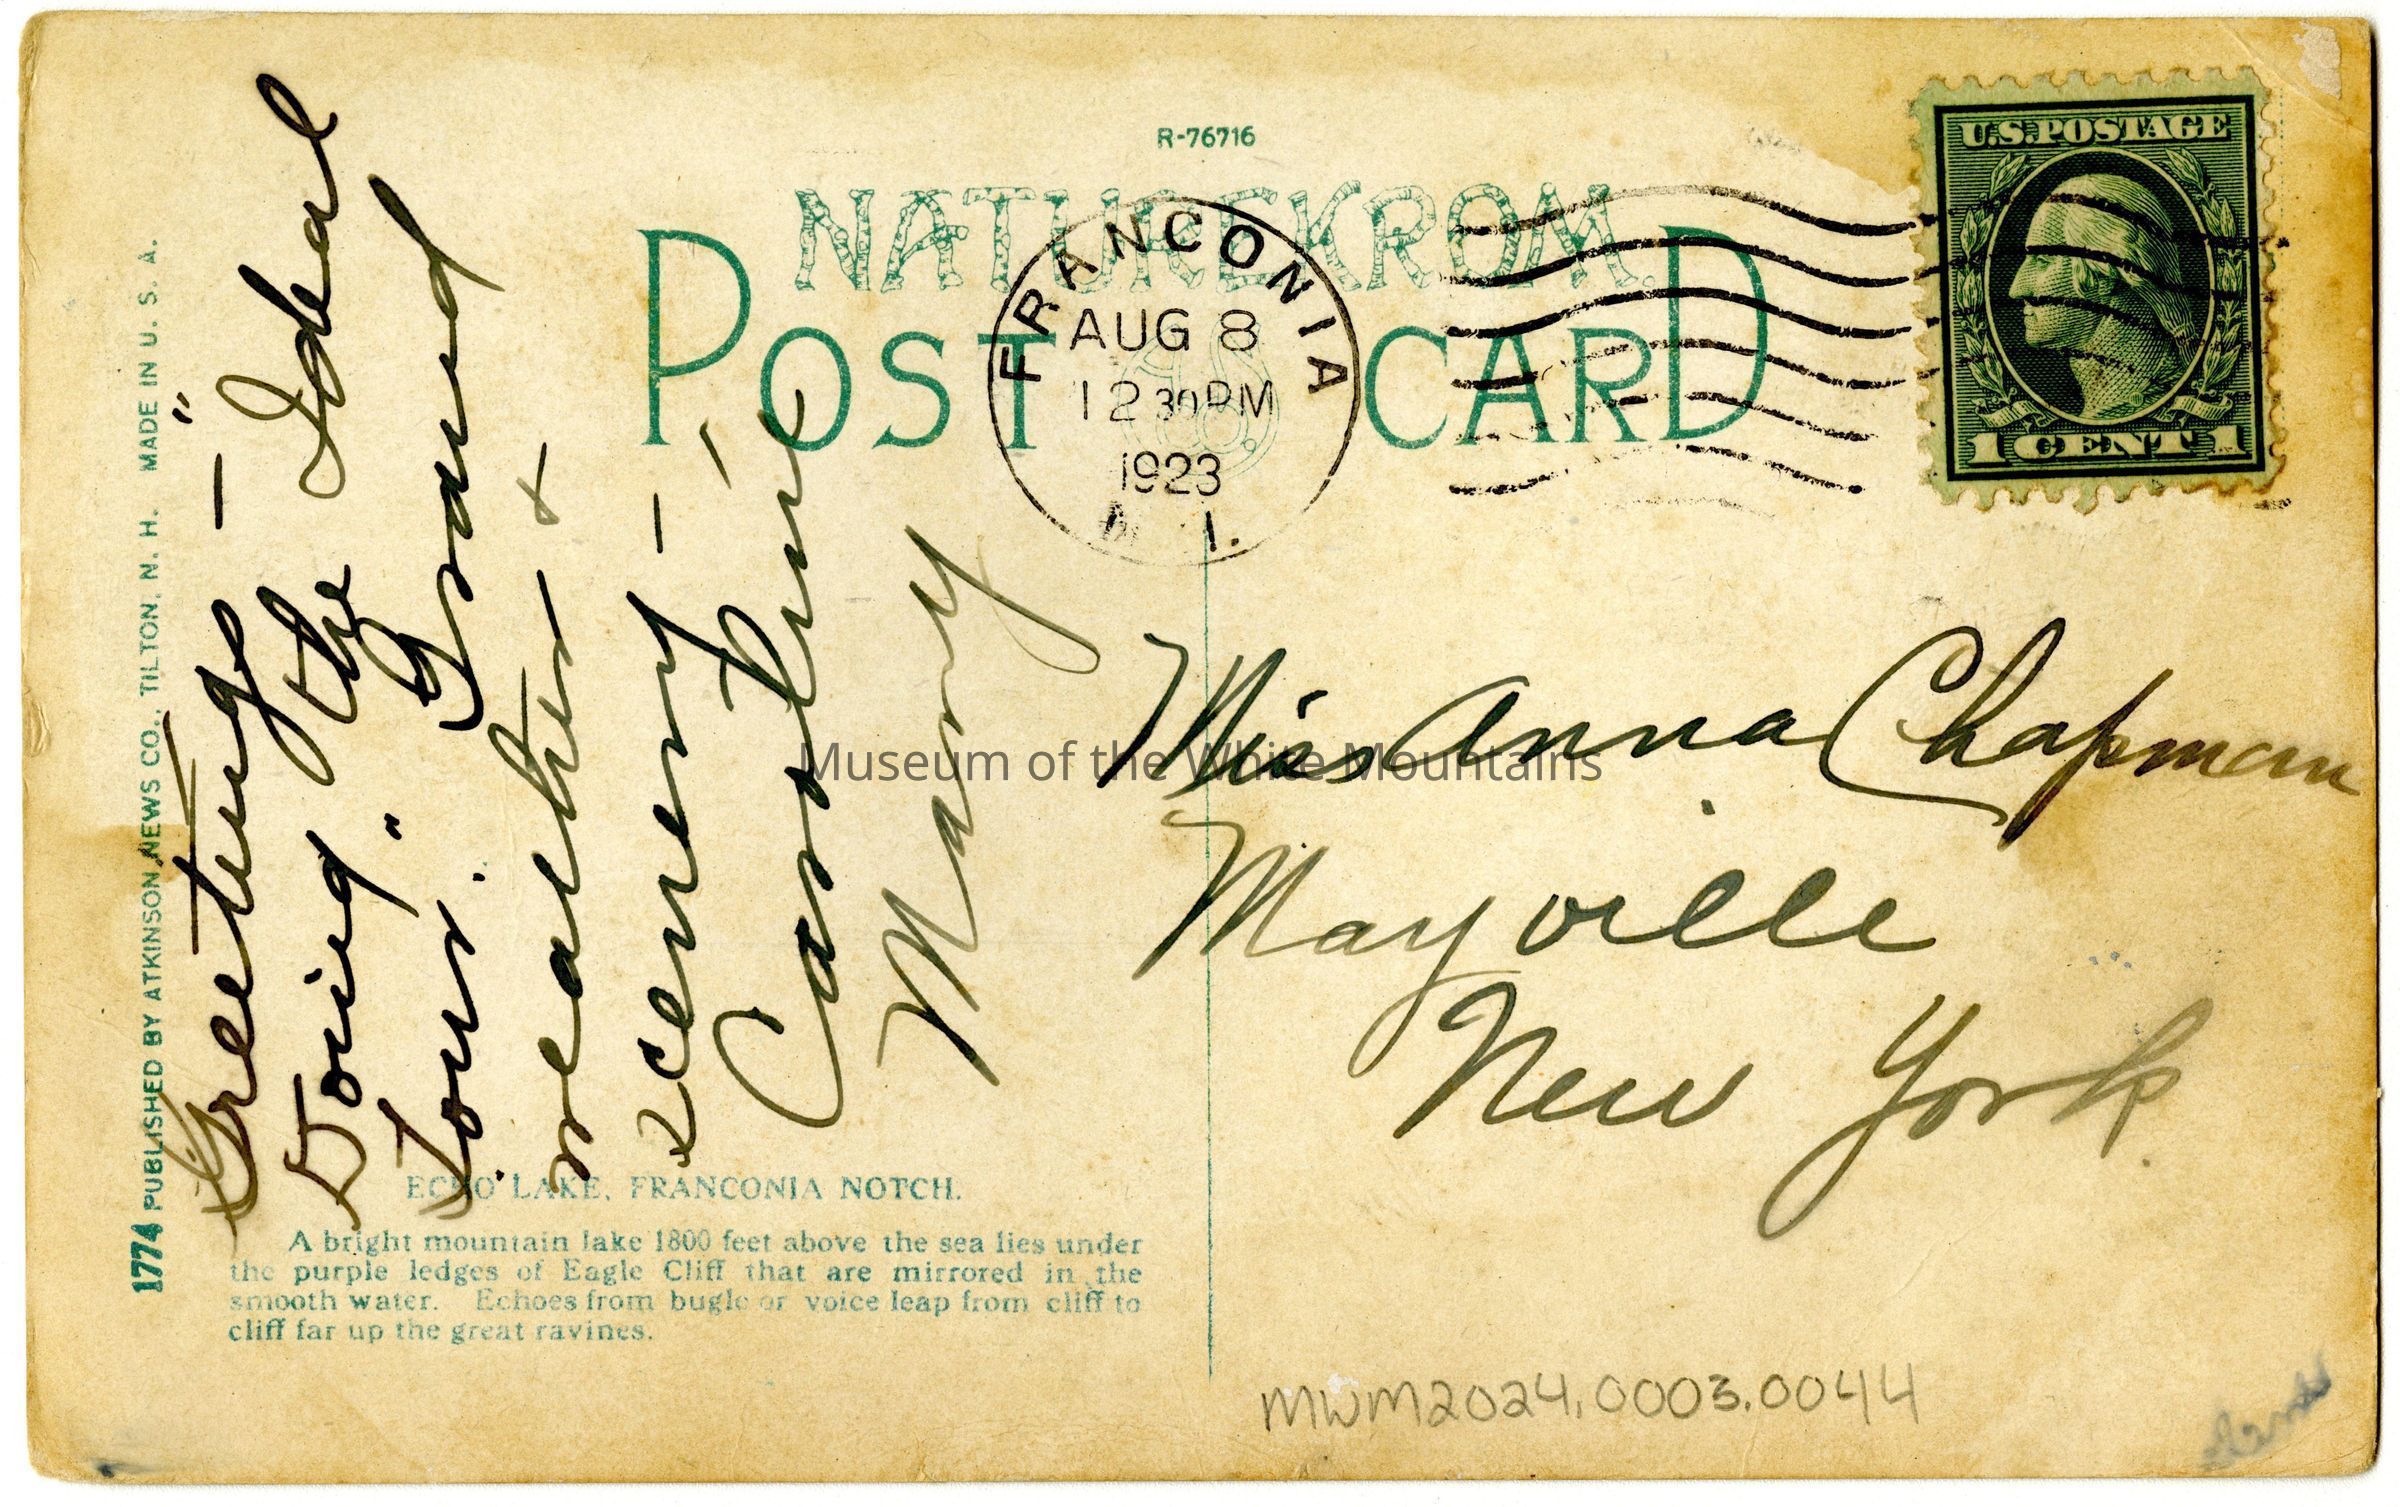 R-76716
NATUREKROM.
POST CARD
FRANCONIA
AUG 8
12 30 PM
1923
U.S. POSTAGE
1 CENT 1
1774 PUBLISHED BY ATKINSON NEWS CO., TILTON, N. H. MADE IN U. S. A.
Greetings —
Doing the "Ideal
Tour." Grand
weather — +
scenery —
Carolline
Mary
Miss Anna Chapman
Mayville
New York
Museum of the White Mountains
ECHO LAKE, FRANCONIA NOTCH.
A bright mountain lake 1800 feet above the sea lies under
the purple ledges of Eagle Cliff that are mirrored in the
smooth water. Echoes from bugle or voice leap from cliff to
cliff far up the great ravines.
MWM2024.0003.0044